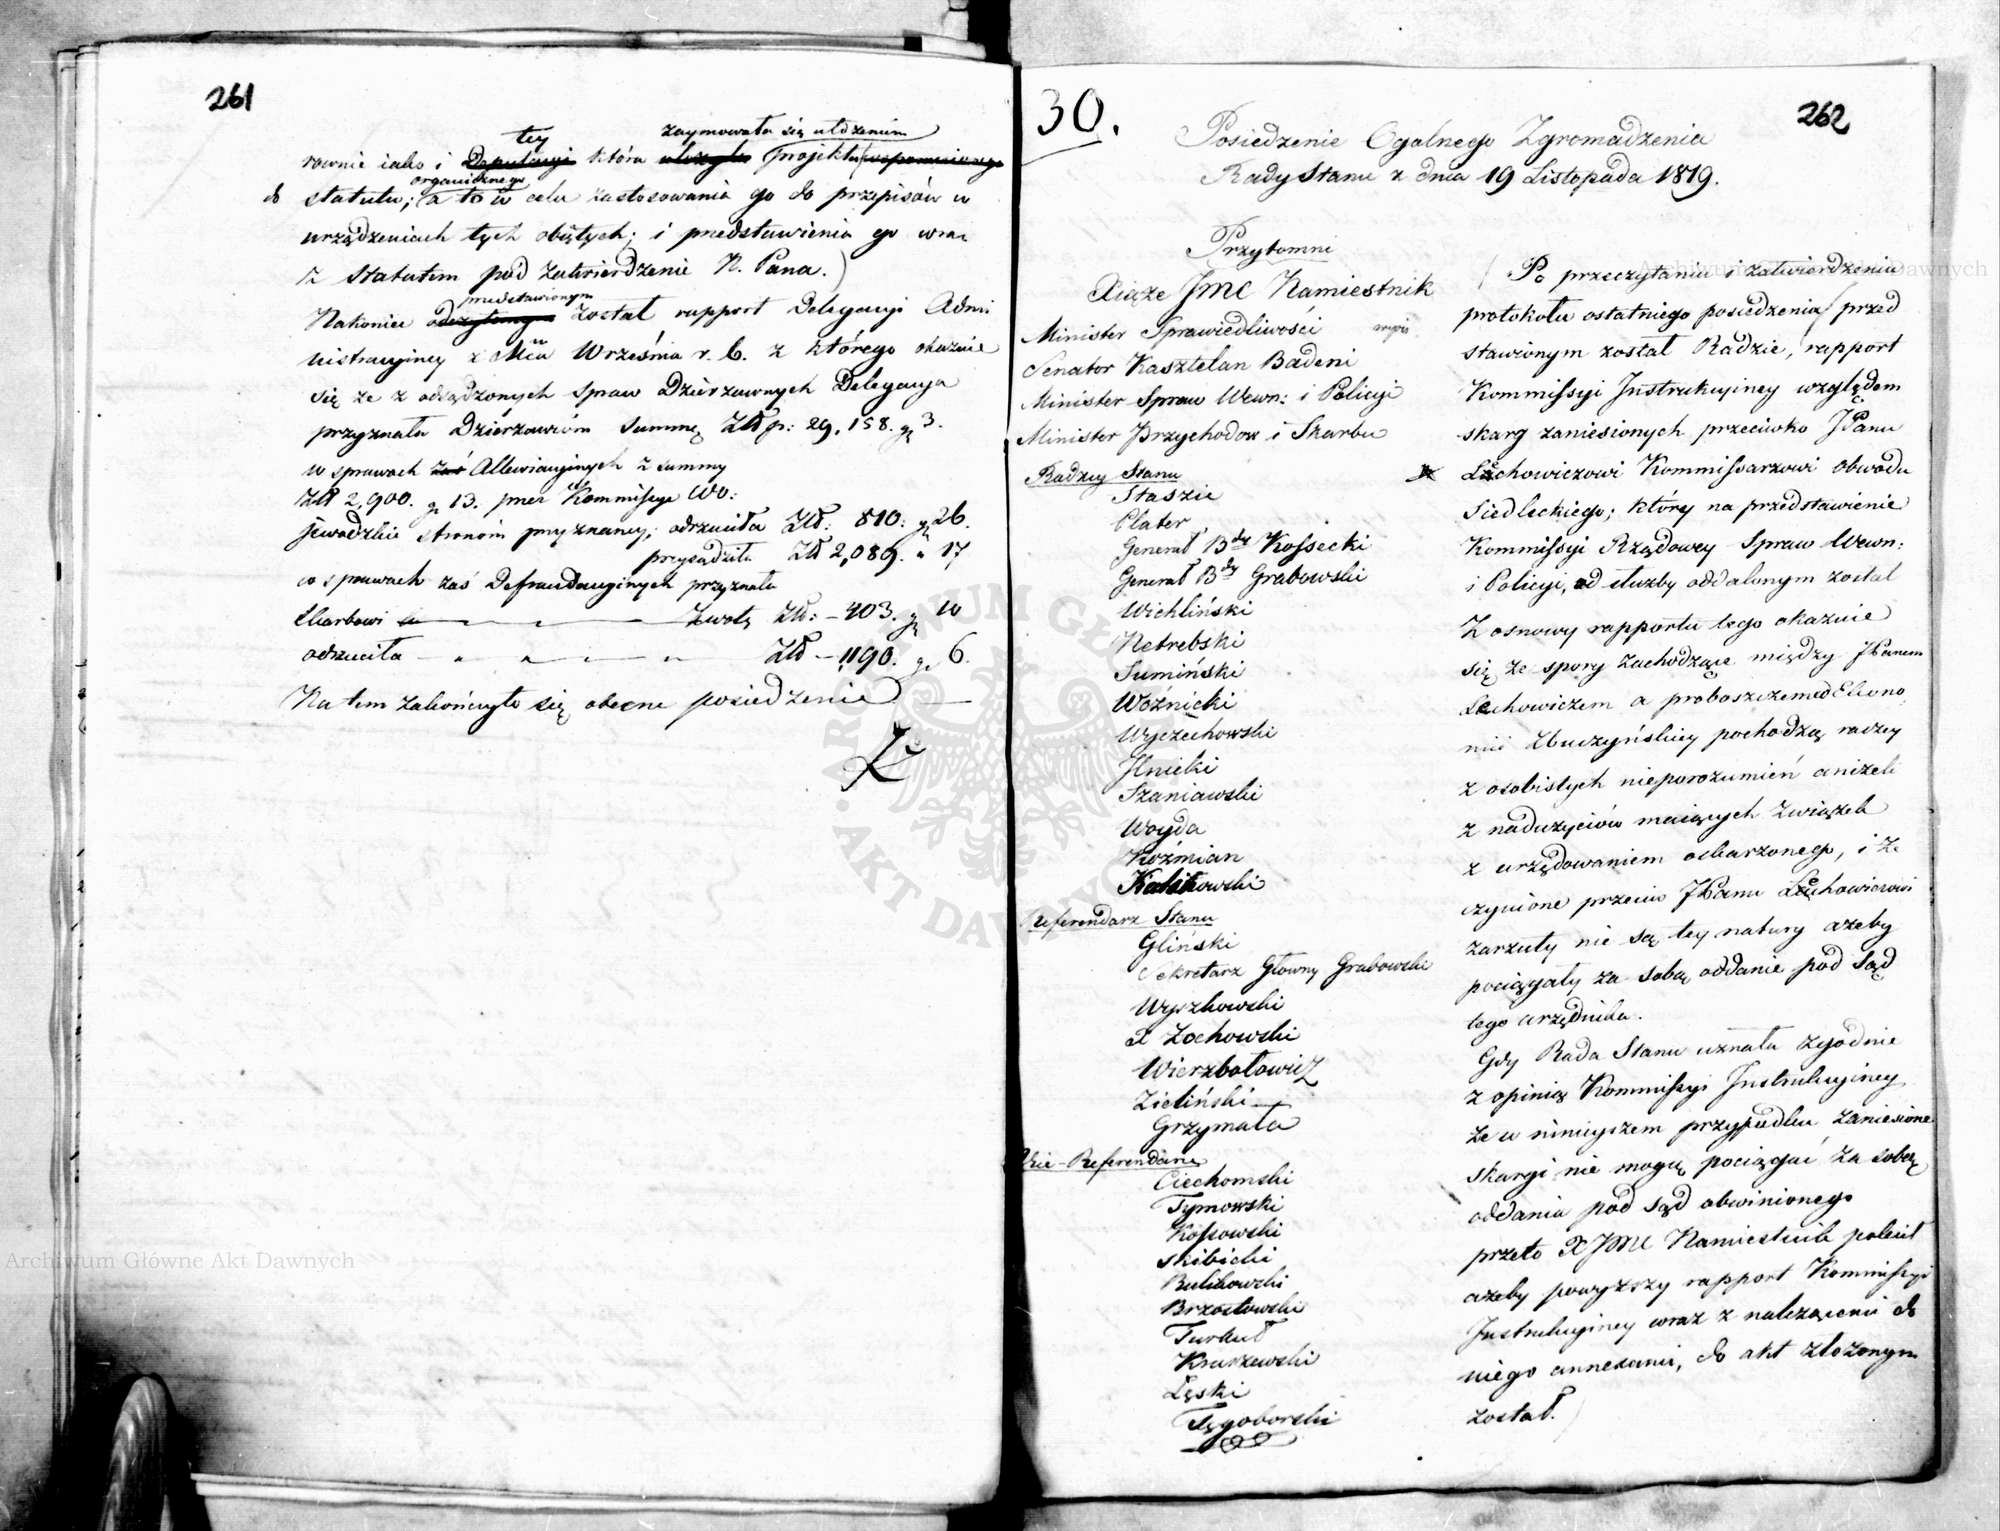 261
tey zaymowała się ułożeniem
rownie iako i Deputacyi która ułożyła projektu wspomnionego
organicznego
do statutu; a to w celu zastosowania go do przepisów w
urządzeniach tych obiętych; i przedstawienia go wraz
z Statutem pod zatwierdzenie N. Pana.)
przedstawionym
Nakoniec odczytanym został rapport Delegacyi Admi
nistracyiney z Mca Września r. b. z którego okazuie
się że z osądzonych spraw Dzierżawnych Delegacya
przyznała Dzierżawcom summę Złp: 29,158. gr 3.
w sprawach zaś Allewiacyinych z summy
Zł 2,900. gr 13. przez Kommissye Wo:
jewodzkie stronom przyznaney; odrzuciła Zł: 810: gr 26.
przysądziła Zł 2,089. " 17
w sprawach zaś Defraudacyinych przyznała
Skarbowi Kwotę Zł: - 403. gr 10
odrzuciła Zł - 1190. gr 6.
Na tem zakończyło się obecne posiedzenie
30.
262
Posiedzenie Ogólnego Zgromadzenia
Rady Stanu z dnia 19 Listopada 1819.
Przytomni
Xiąże JMC Namiestnik
Minister Sprawiedliwości
Senator Kasztelan Badeni
Minister Spraw Wewn: i Policyi
Minister Przychodow i Skarbu
Radzcy Stanu
Staszic
Plater
Generał Bdy Kossecki
Generał Bdy Grabowski
Wichliński
Netrebski
Sumiński
Woźnicki
Wyczechowski
Ilnicki
Szaniawski
Woyda
Koźmian
Kalitowski
Referendarz Stanu
Gliński
Sekretarz Głowny Grabowski
Wyszkowski
X Zochowski
Wierzbołowicz
Zieliński
Grzymała
Vice-Referendarze
Ciechomski
Tymowski
Kossowski
Skibicki
Bulikowski
Brzostowski
Turkuł
Kruszewski
Łęski
Tęgoborski
(Po przeczytaniu i zatwierdzeniu
protokołu ostatniego posiedzenia) przed
stawionym został Radzie, rapport
Kommissyi Instrukcyiney względem
skarg zaniesionych przeciwko JPanu
Lechowiczowi Kommissarzowi obwodu
Siedleckiego; który na przedstawienie
Kommissyi Rządowey Spraw Wewn:
i Policyi, od służby oddalonym został
Z osnowy rapportu tego okazuie
się że spory zachodzące między JPanem
Lechowiczem a proboszczem Ekono
mii Zbuczyńskiey pochodzą raczey
z osobistych nieporozumień aniżeli
z nadużyciów maiących związek
z urzędowaniem oskarzonego, i że
czynione przeciw JPanu Lechowiczowi
zarzuty nie są tey natury ażeby
pociągały za sobą oddanie pod sąd
tego urzędnika.
Gdy Rada Stanu uznała zgodnie
z opinią Kommissyi Instrukcyiney
że w ninieyszem przypadku zaniesione
skargi nie mogą pociągać za sobą
oddania pod sąd obwinionego
przeto X JMC Namiestnik polecił
ażeby powyższy rapport Kommissyi
Instrukcyiney wraz z należącemi do
niego annexami, do akt złożonym
został.)
Archiwum Główne Akt Dawnych
Archiwum Główne Akt Dawnych
ARCHIWUM GŁÓWNE AKT DAWNYCH